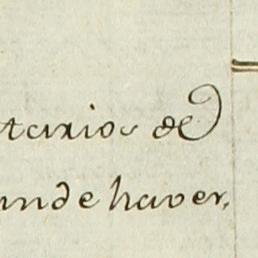 tarios de
unde haver,